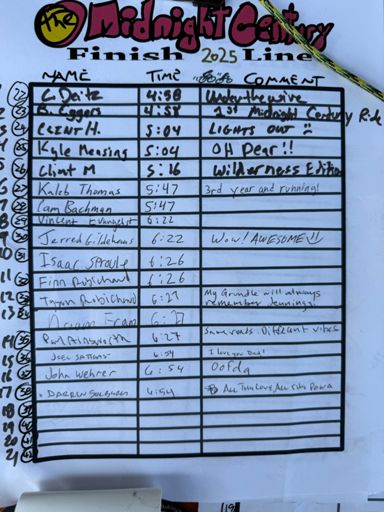 The Midnight Century
Finish 2025 Line
NAME TIME COMMENT
22 C. Deitz 4:58 Under the wire
2 23 B. Eggers 4:58 1st Midnight Century Ride
3 24 CLINT H. 5:04 LIGHTS OUT
4 25 Kyle Mensing 5:04 OH Dear!!
5 26 Clint M 5:16 Wilderness Edition
6 27 Kaleb Thomas 5:47 3rd year and running!
7 28 Cam Bachman 5:47
8 29 Vincent Evangelist 6:22
9 30 Jerred Gildehaus 6:22 Wow! AWESOME!!
10 31 Isaac Sproule 6:26
11 32 Finn Robichaud 6:26
12 33 Robichaud 6:27 My Grundle will always
remember Jennings!
13 34 6:27
14 35 6:27 Same roads. Different vibes
15 36 Joel 6:54 I love you Dad!
16 37 John Wehrer 6:54 Oofda
17 38 DARREN 6:54 ALL THIS LOVE ALL THIS
18
19
20
21